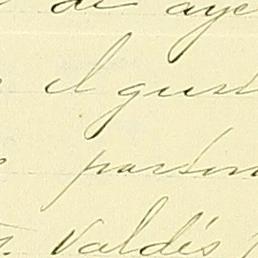 de aye
el gust
partin
Valdés